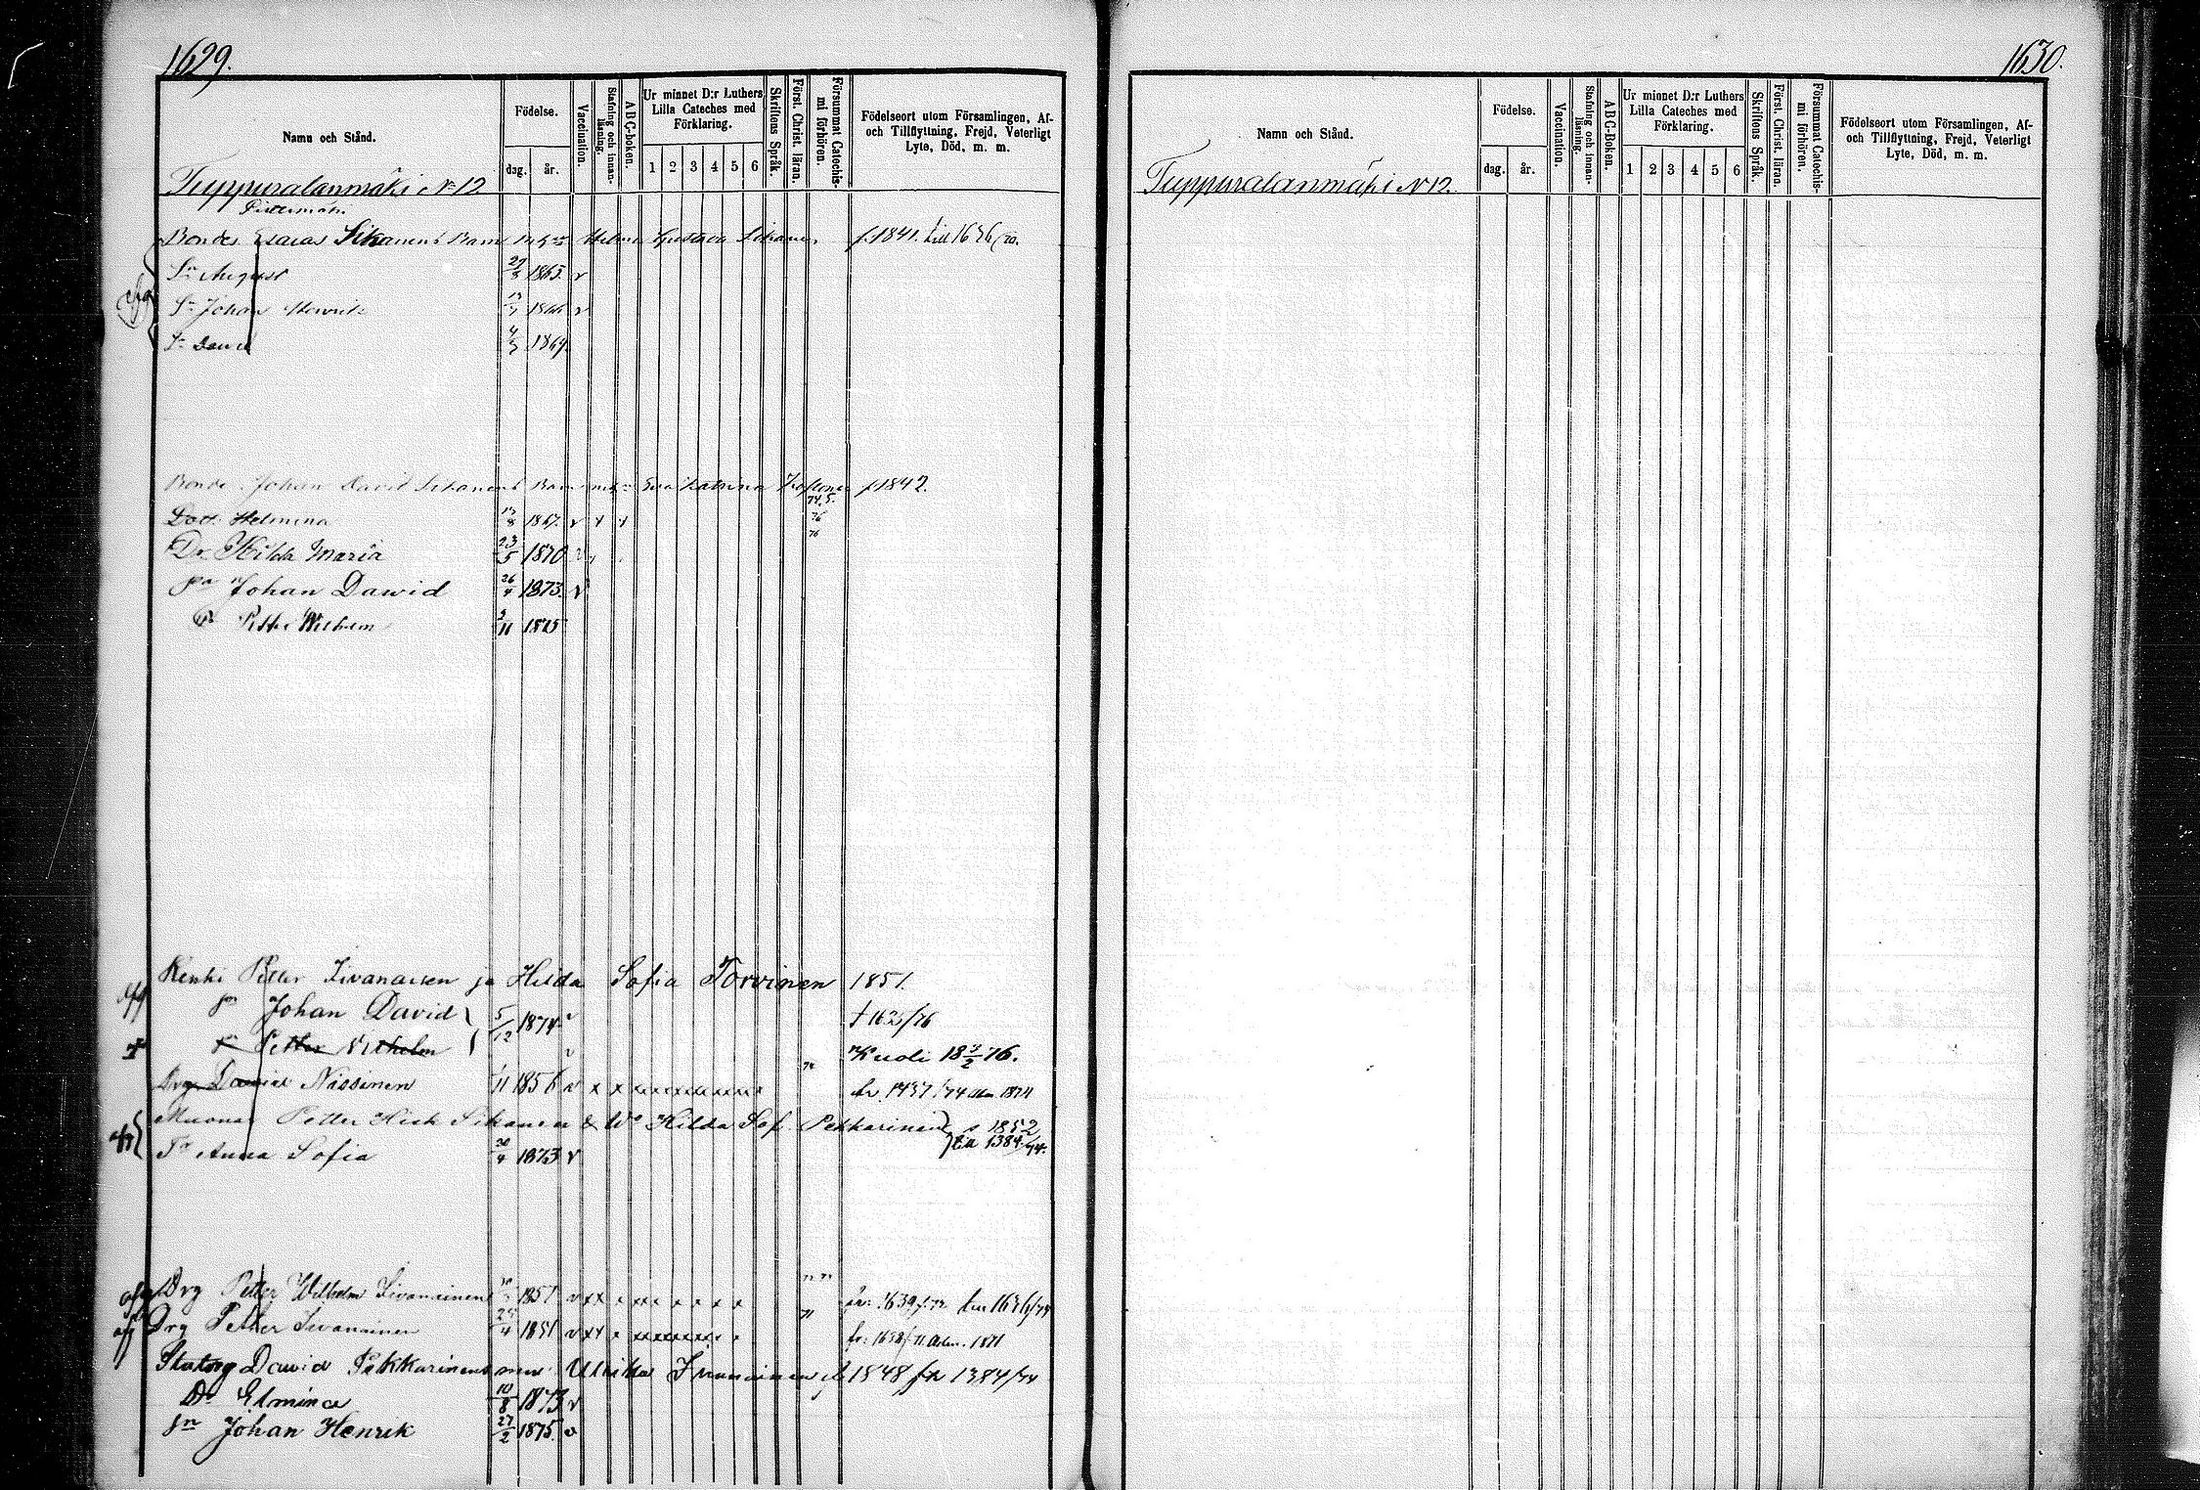 1629.
Namn och Stånd.
Födelse.
dag.
år.
Vaccination.
Stafning och innanläsning.
ABC-boken.
Ur minnet D:r Luthers
Lilla Cateches med
Förklaring.
1 2 3 4 5 6
Skriftens Språk.
Först. Christ. läran.
Försummat Catechismi förhören.
Födelseort utom Församlingen, Af-
och Tillflyttning, Frejd, Veterligt
Lyte, Död, m. m.
Tuppuralanmäki No 12.
Bonden Esaias Sikanens Barn Gustava f. 1841. till 1636/70.
Sn August 1863. v
Sn Johan Henrik 1866 v
4/3 1869.
Bonde Johan David Sikanens Barn Eva Katrina f 1842.
74.5.
Dott. Helmina 1867. v
76
Dr Hilda Maria 23/5 1870 v
76
Sn Johan Dawid 26/4 1873. v
Petter Wilhelm 11 1875
Petter Iivanainen ja Hilda Sofia Torvinen 1851.
Sn Johan David 5/12 1874 v † 1635/76
Petter Vilhelm Kuoli 18 3/2 76.
Drg Nissinen 11 1856 v x x fr. 1437/74 1874
Petter Sikanen & Hilda Sof. Pekkarinen 1852
till 1384/74.
Anna Sofia 20/4 1873 v
Drg Petter Wilhelm Iivanainen 1857 v x x 1639/72. till 1636/74
Drg Petter Iivanainen 25/4 1851 v x x fr: 1638/71 1871
David Pekkarinens Ulrika Iivanainen 1848 fr 1384/74
Dr Elmina 10/8 1873 v
Sn Johan Henrik 27/2 1875. v
1630.
Namn och Stånd.
Födelse.
dag.
år.
Vaccination.
Stafning och innanläsning.
ABC-Boken.
Ur minnet D:r Luthers
Lilla Cateches med
Förklaring.
1 2 3 4 5 6
Skriftens Språk.
Först. Christ. läran.
Försummat Catechismi förhören.
Födelseort utom Församlingen, Af-
och Tillflyttning, Frejd, Veterligt
Lyte, Död, m. m.
Tuppuralanmäki N 12.